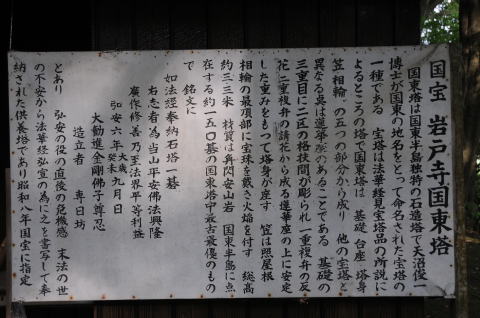 国宝 岩戸寺国東塔
国東塔は国東半島独特の石造塔で天沼俊一
博士が国東の地名をとって命名された宝塔の
一種である 宝塔は法華経見宝塔品の所説に
よるところの塔で国東塔は 基礎 台座 塔身
笠 相輪 の五つの部分から成り 他の宝塔と
異なる点は蓮華座のあることである 基礎の
三重目に二区の格狭間が彫られ一重複弁の反
花 二重複弁の請花から成る蓮華座の上に安定
した重みをもって塔身が座す 笠は照屋根
相輪の最頂部に宝珠を戴き火焔を付す 総高
約三三米 材質は角閃安山岩 国東半島に点
在する約一五〇基の国東塔中最古最優のもの
で 銘文に
如法経奉納石塔一基
右志者為当山平安佛法興隆
廣作修善乃至法界平等利益
弘安六年大歳癸未九月日
大勧進金剛佛子尊忍
造立者 専日坊
とあり 弘安の役の直後の危機感 末法の世
の不安から法華経弘宣の為に之を書写して奉
納された供養塔であり昭和八年国宝に指定